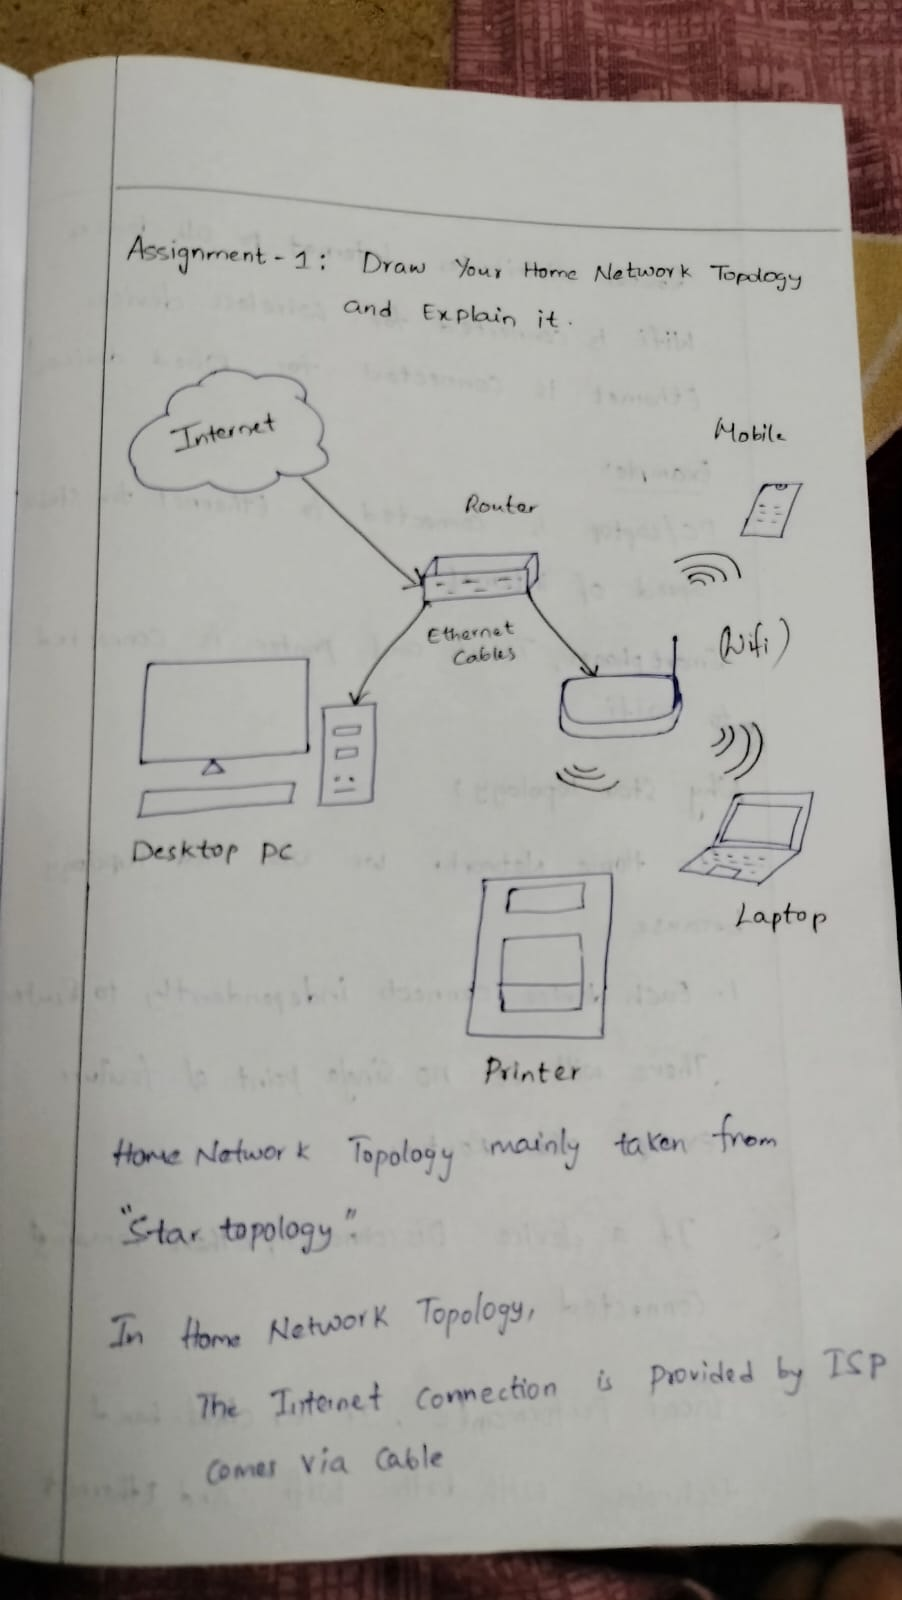 Assignment - 1: Draw Your Home Network Topology
and Explain it.
Internet
Mobile
Router
Ethernet
Cables
(Wifi)
Desktop PC
Laptop
Printer
Home Network Topology mainly taken from
"Star topology".
In Home Network Topology,
The Internet Connection is Provided by ISP
Comes via Cable